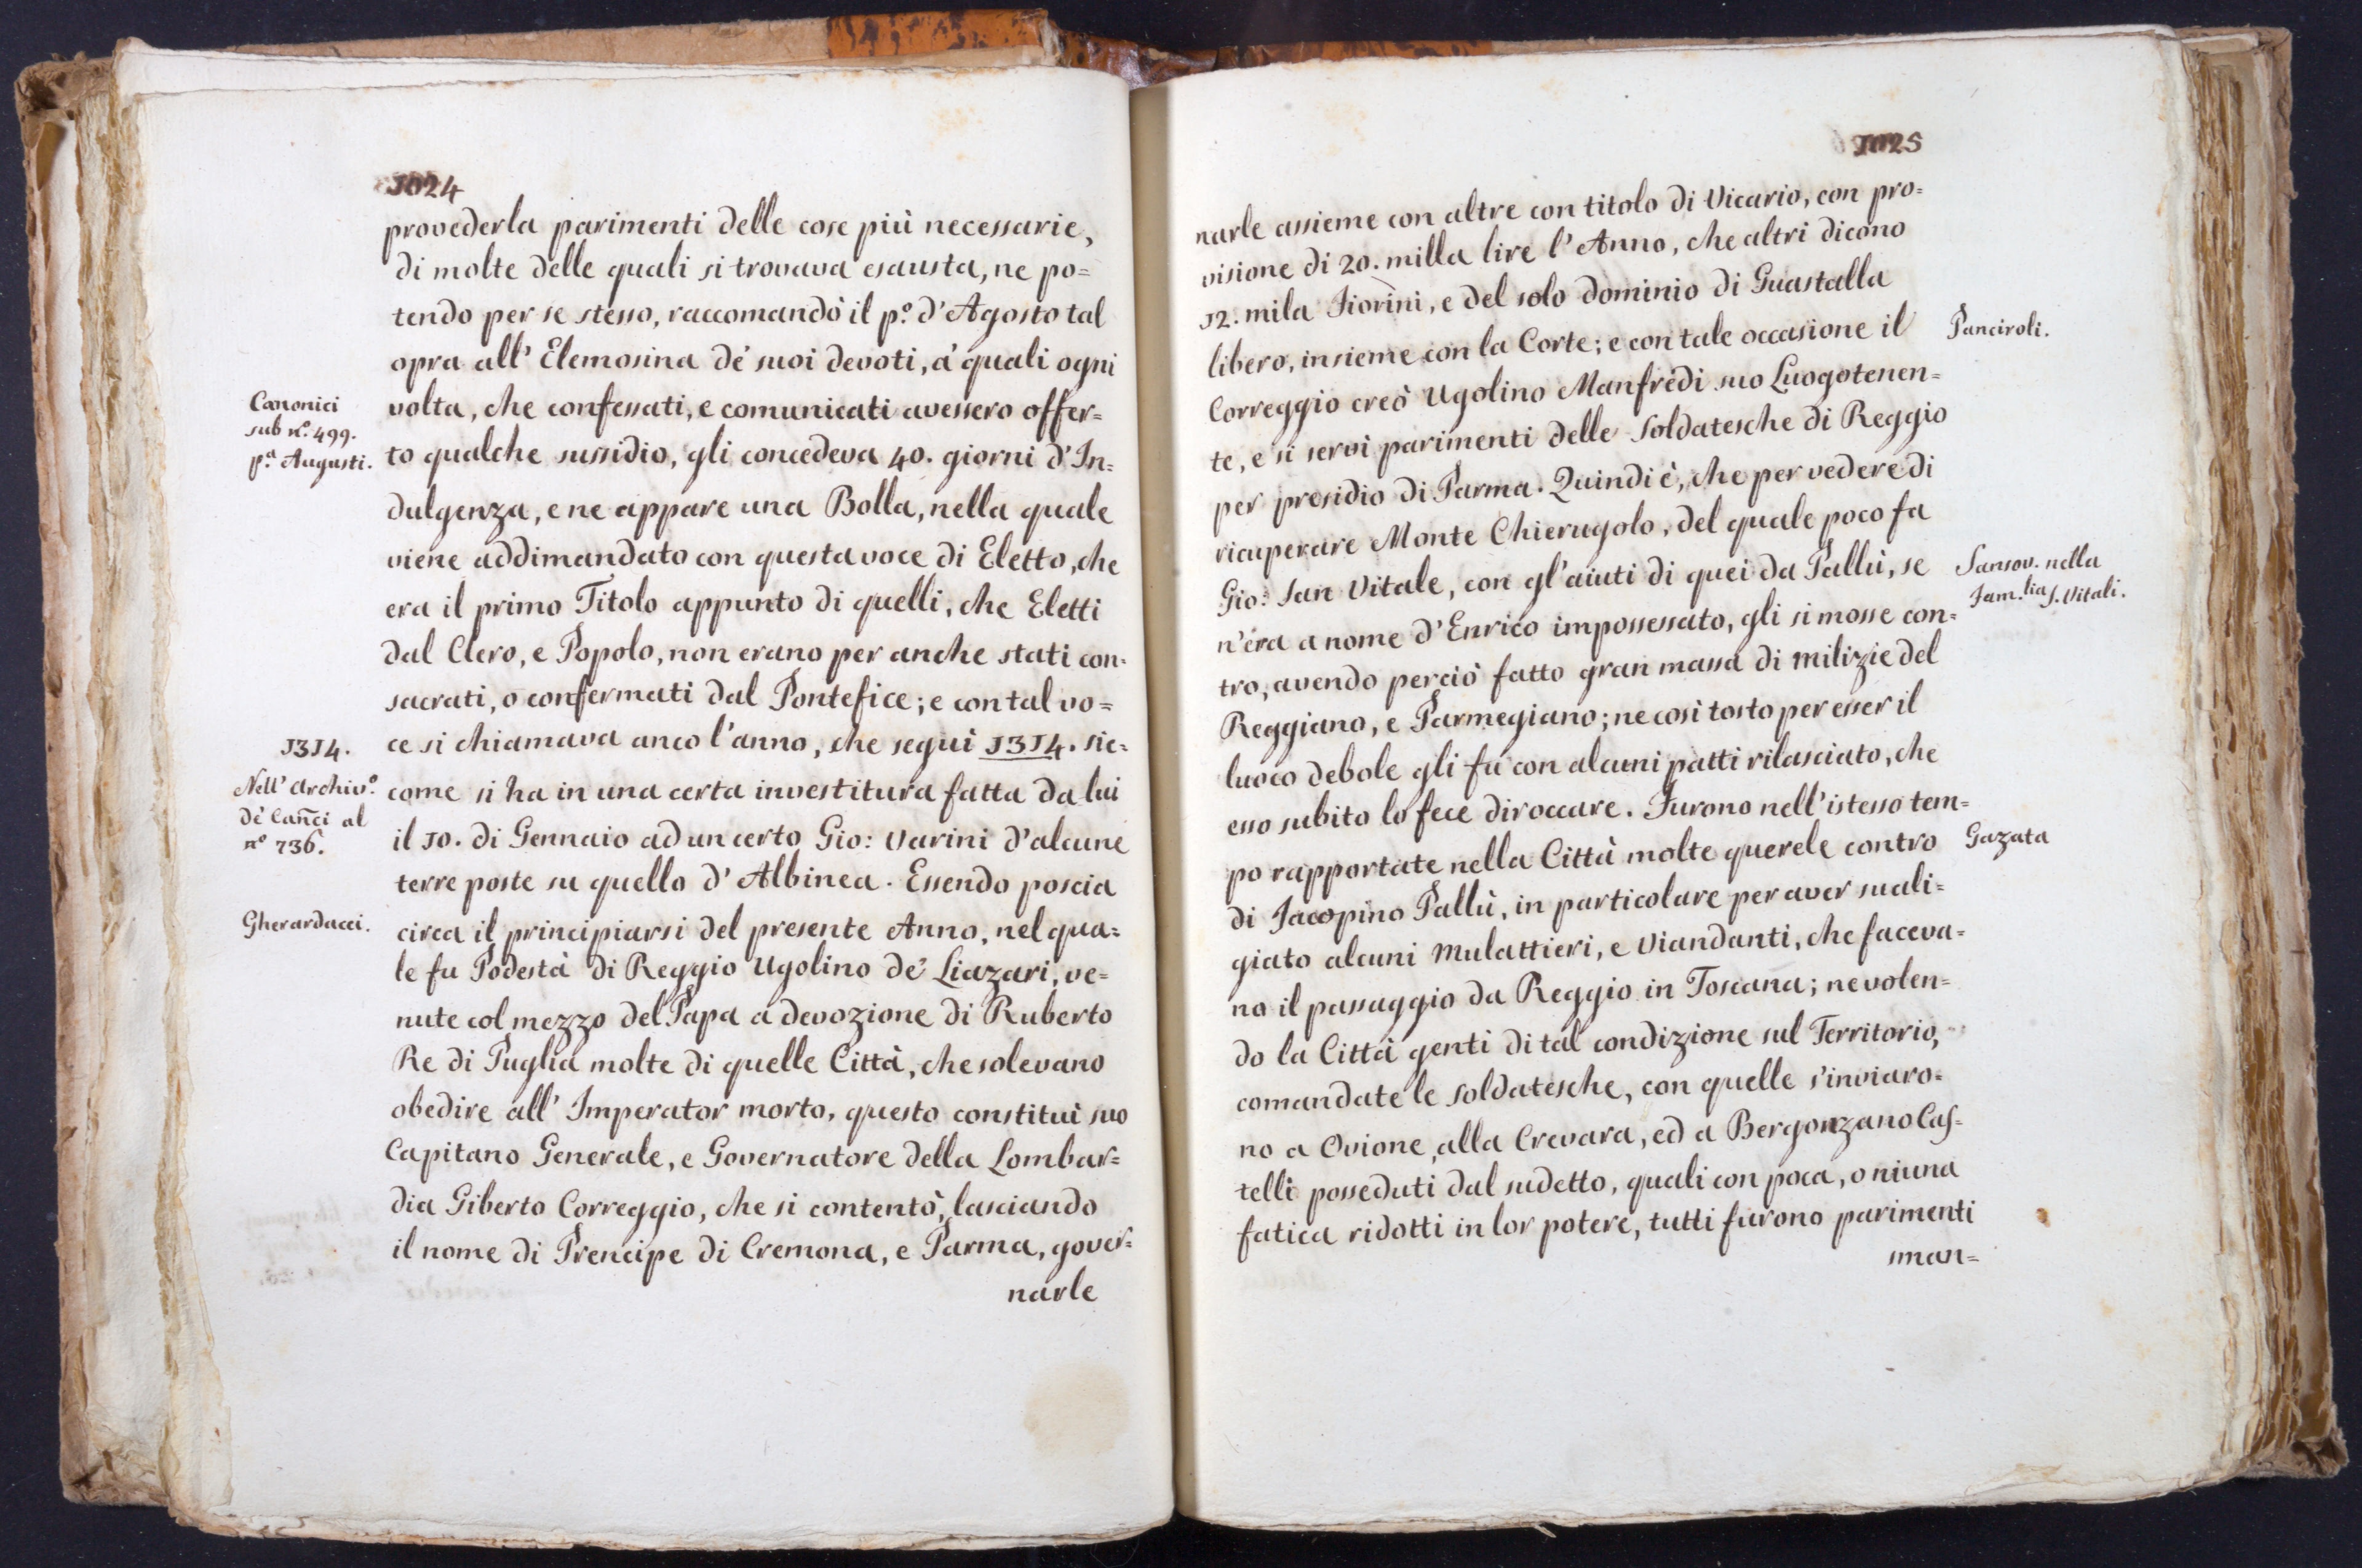 1024
provederla parimenti delle cose più necessarie,
di molte delle quali si trovava esausta, ne po=
tendo per se stesso, raccomandò il p.º d'Agosto tal
opra all' Elemosina de' suoi devoti, a' quali ogni
Canonici
sub n.º 499.
p.ª Augusti.
volta, che confessati, e comunicati avessero offer=
to qualche sussidio, gli concedeva 40. giorni d'In=
dulgenza, e ne appare una Bolla, nella quale
viene addimandato con questa voce di Eletto, che
era il primo Titolo appunto di quelli, che Eletti
dal Clero, e Popolo, non erano per anche stati con=
sacrati, o confermati dal Pontefice; e con tal vo=
1314.
ce si chiamava anco l'anno, che seguì 1314. sic=
Nell' Archiv.º
dè Can̄ci al
nº 736.
come si ha in una certa investitura fatta da lui
il 10. di Gennaio ad un certo Gio: Varini d'alcune
terre poste su quello d'Albinea. Essendo poscia
Gherardacci.
circa il principiarsi del presente Anno, nel qua=
le fu Podestà di Reggio Ugolino de' Liazari, ve=
nute col mezzo del Papa a devozione di Ruberto
Re di Puglia molte di quelle Città, che solevano
obedire all' Imperator morto, questo constituì suo
Capitano Generale, e Governatore della Lombar=
dia Giberto Correggio, che si contentò, lasciando
il nome di Prencipe di Cremona, e Parma, gover=
narle
1025
narle assieme con altre con titolo di Vicario, con pro=
visione di 20. milla lire l'Anno, che altri dicono
12. mila Fiorini, e del solo dominio di Guastalla
Panciroli.
libero, insieme con la Corte; e con tale occasione il
Correggio creò Ugolino Manfredi suo Luogotenen=
te, e si servì parimenti delle Soldatesche di Reggio
per presidio di Parma. Quindi è, che per vedere di
ricuperare Monte Chierugolo, del quale poco fa
Sansov. nella
Fam.lia S. Vitali.
Gio: San Vitale, con gl'aiuti di quei da Pallù, se
n'era a nome d'Enrico impossessato, gli si mosse con=
tro, avendo perciò fatto gran massa di milizie del
Reggiano, e Parmegiano; ne così tosto per esser il
luoco debole gli fù con alcuni patti rilasciato, che
esso subito lo fece diroccare. Furono nell'istesso tem=
Gazata
po rapportate nella Città molte querele contro
di Jacopino Pallù, in particolare per aver suali=
giato alcuni Mulattieri, e Viandanti, che faceva=
no il passaggio da Reggio in Toscana; ne volen=
do la Città genti di tal condizione sul Territorio,
comandate le soldatesche, con quelle s'inviaro=
no a Ovione, alla Crevara, ed a Bergonzano Cas=
telli posseduti dal sudetto, quali con poca, o niuna
fatica ridotti in lor potere, tutti furono parimenti
sman=